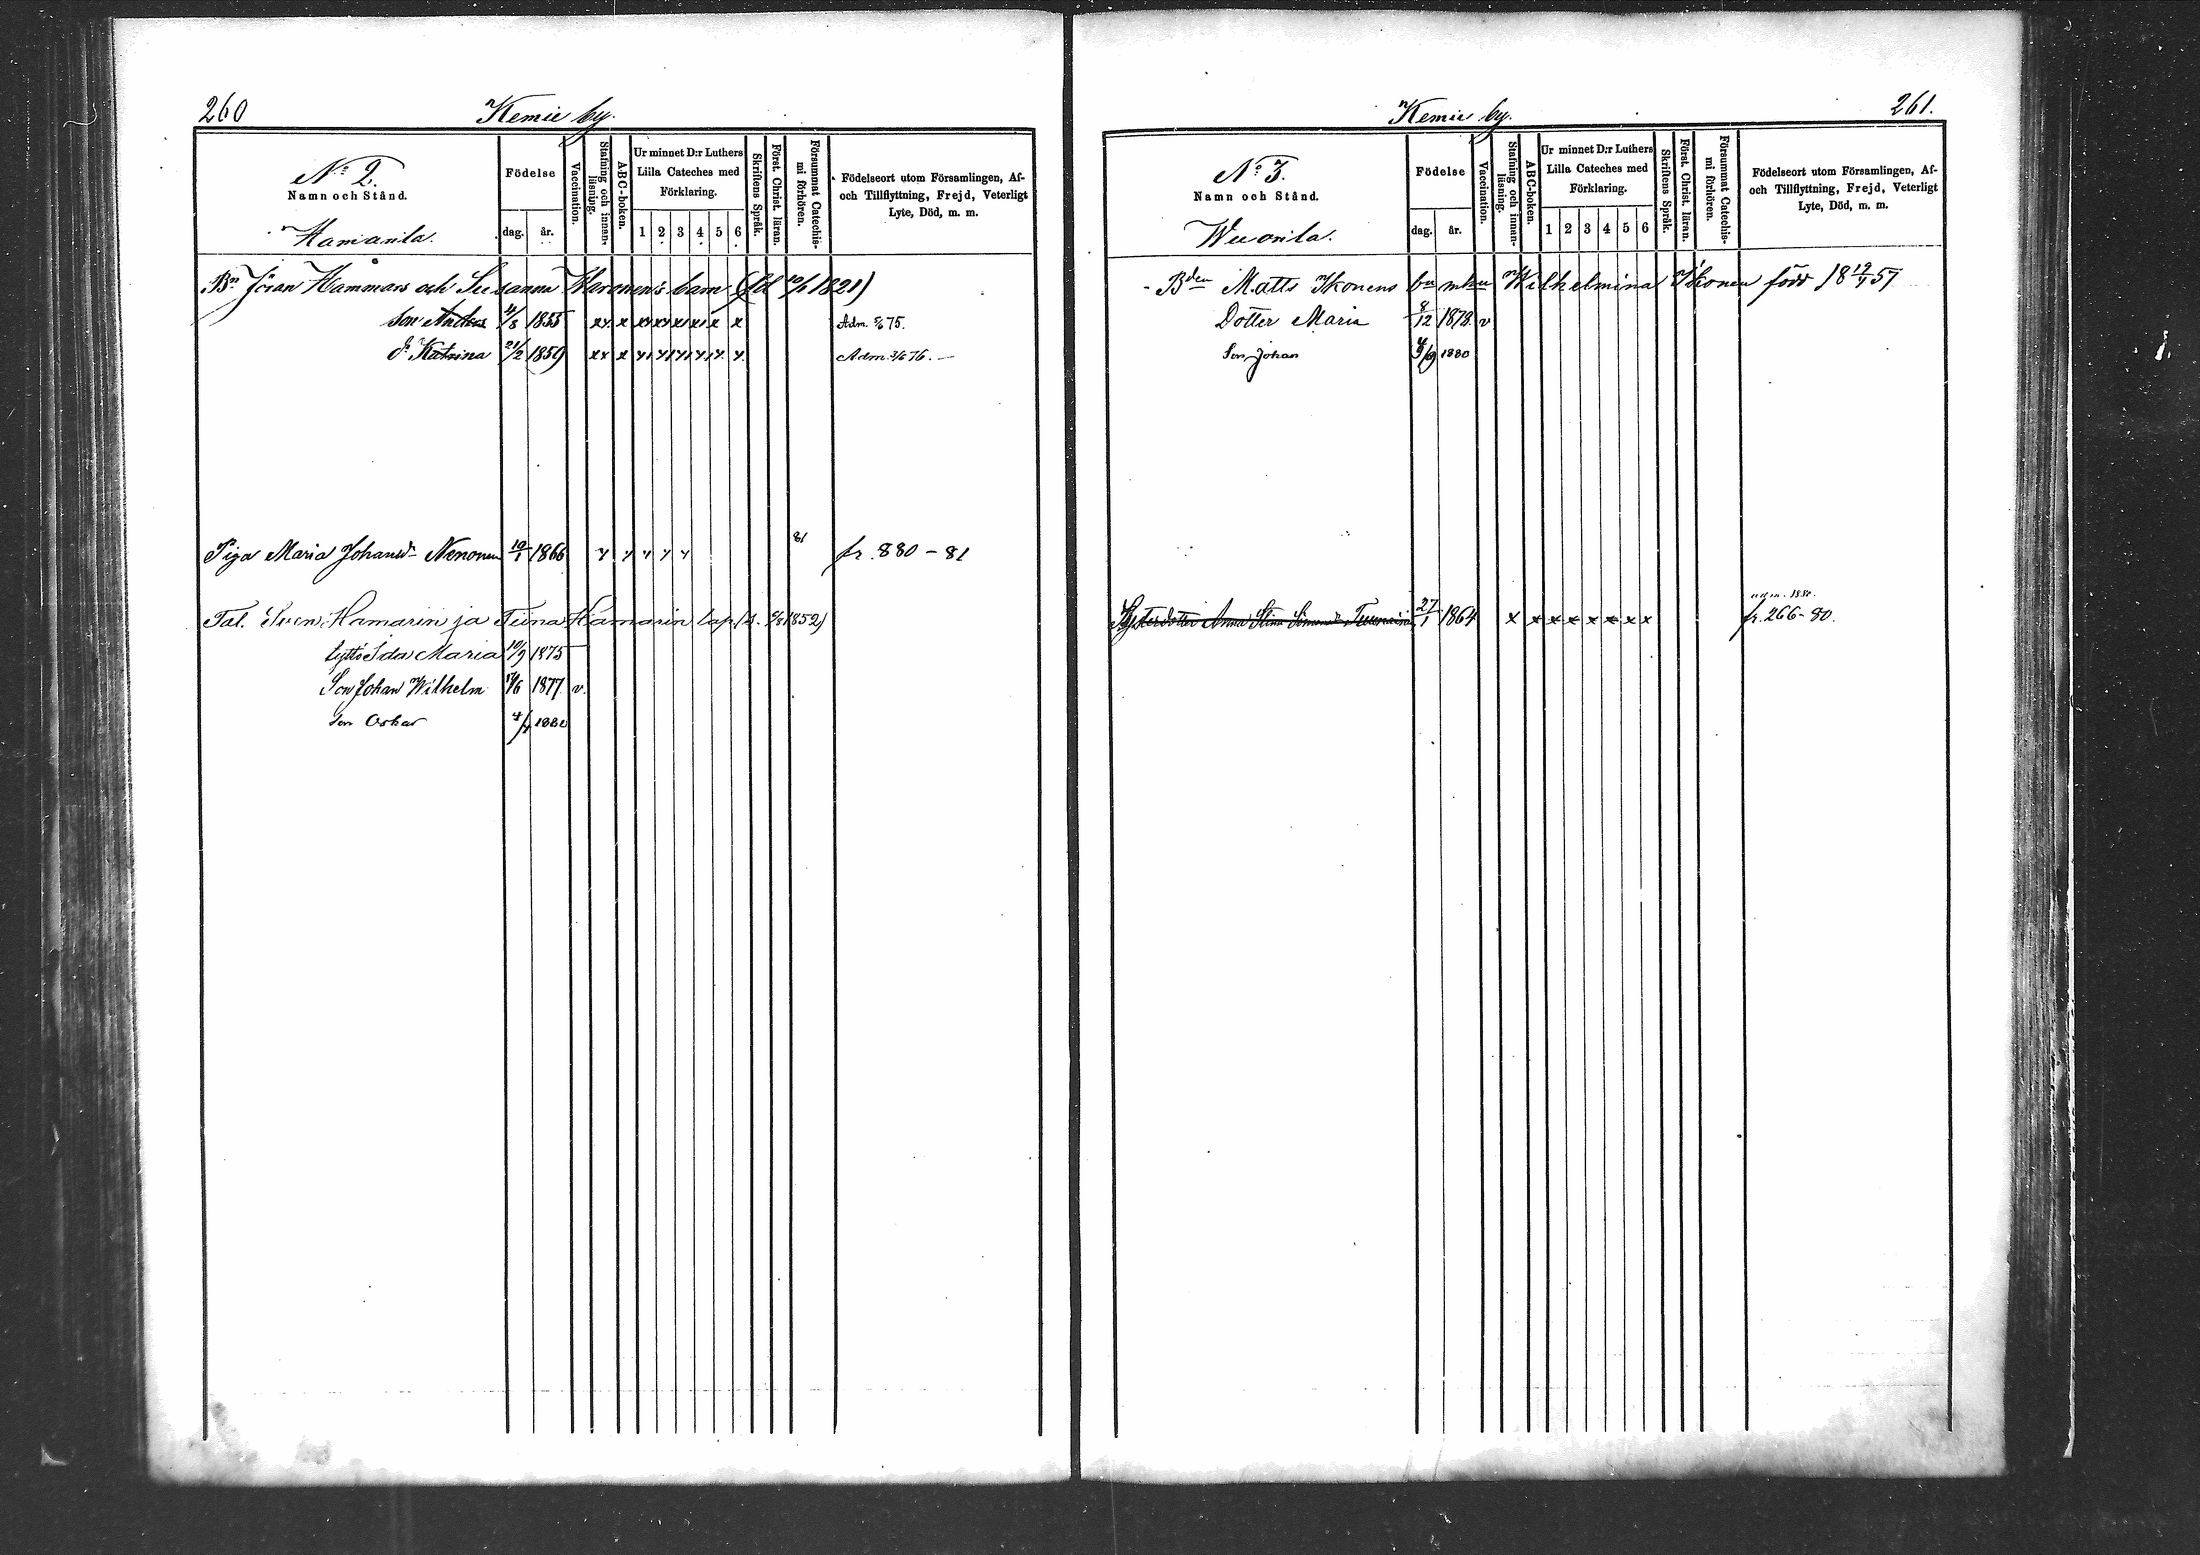 260
Kemie by.
No 2.
Namn och Stånd.
Hamarila.
Födelse
dag.
år.
Vaccination.
Stafning och innanläsning.
ABC-boken.
Ur minnet D:r Luthers
Lilla Cateches med
Förklaring.
1 2 3 4 5 6
Skriftens Språk.
Först. Christ. läran.
Försummat Catechismi förhören.
Födelseort utom Församlingen, Af-
och Tillflyttning, Frejd, Veterligt
Lyte, Död, m. m.
Bn Jöran Hammars och Susanna Waronen's barn (fdd 10/1 1821)
Son Anders 4/8 1855 xx x xx xx xx xx x x Adm. 75.
dr Katrina 21/2 1859 Adm. 76. —
Piga Maria Johansdr Nenonen 10/1 1866 81 fr. 880-81
Tal. Sven Hamarin ja Tiina Hamarin lap. 1852)
tyttö Ida Maria 10/9 1875
Son Johan Wilhelm 1877 v.
Son Oskar 1880
Kemie by.
261.
No 3.
Namn och Stånd.
Wuorila.
Födelse
dag.
år.
Vaccination.
Stafning och innanläsning.
ABC-boken.
Ur minnet D:r Luthers
Lilla Cateches med
Förklaring.
1 2 3 4 5 6
Skriftens Språk.
Först. Christ. läran.
Försummat Catechismi förhören.
Födelseort utom Församlingen, Af-
och Tillflyttning, Frejd, Veterligt
Lyte, Död, m. m.
Bden Matts Ikonens Wilhelmina Ikonen född 18 19/1 57
Dotter Maria 9/12 1878 v
Son Johan 1880
adm. 1880.
Systerdotter Anna Stina 27/1 1864 x x x x x x x x fr. 266-80.